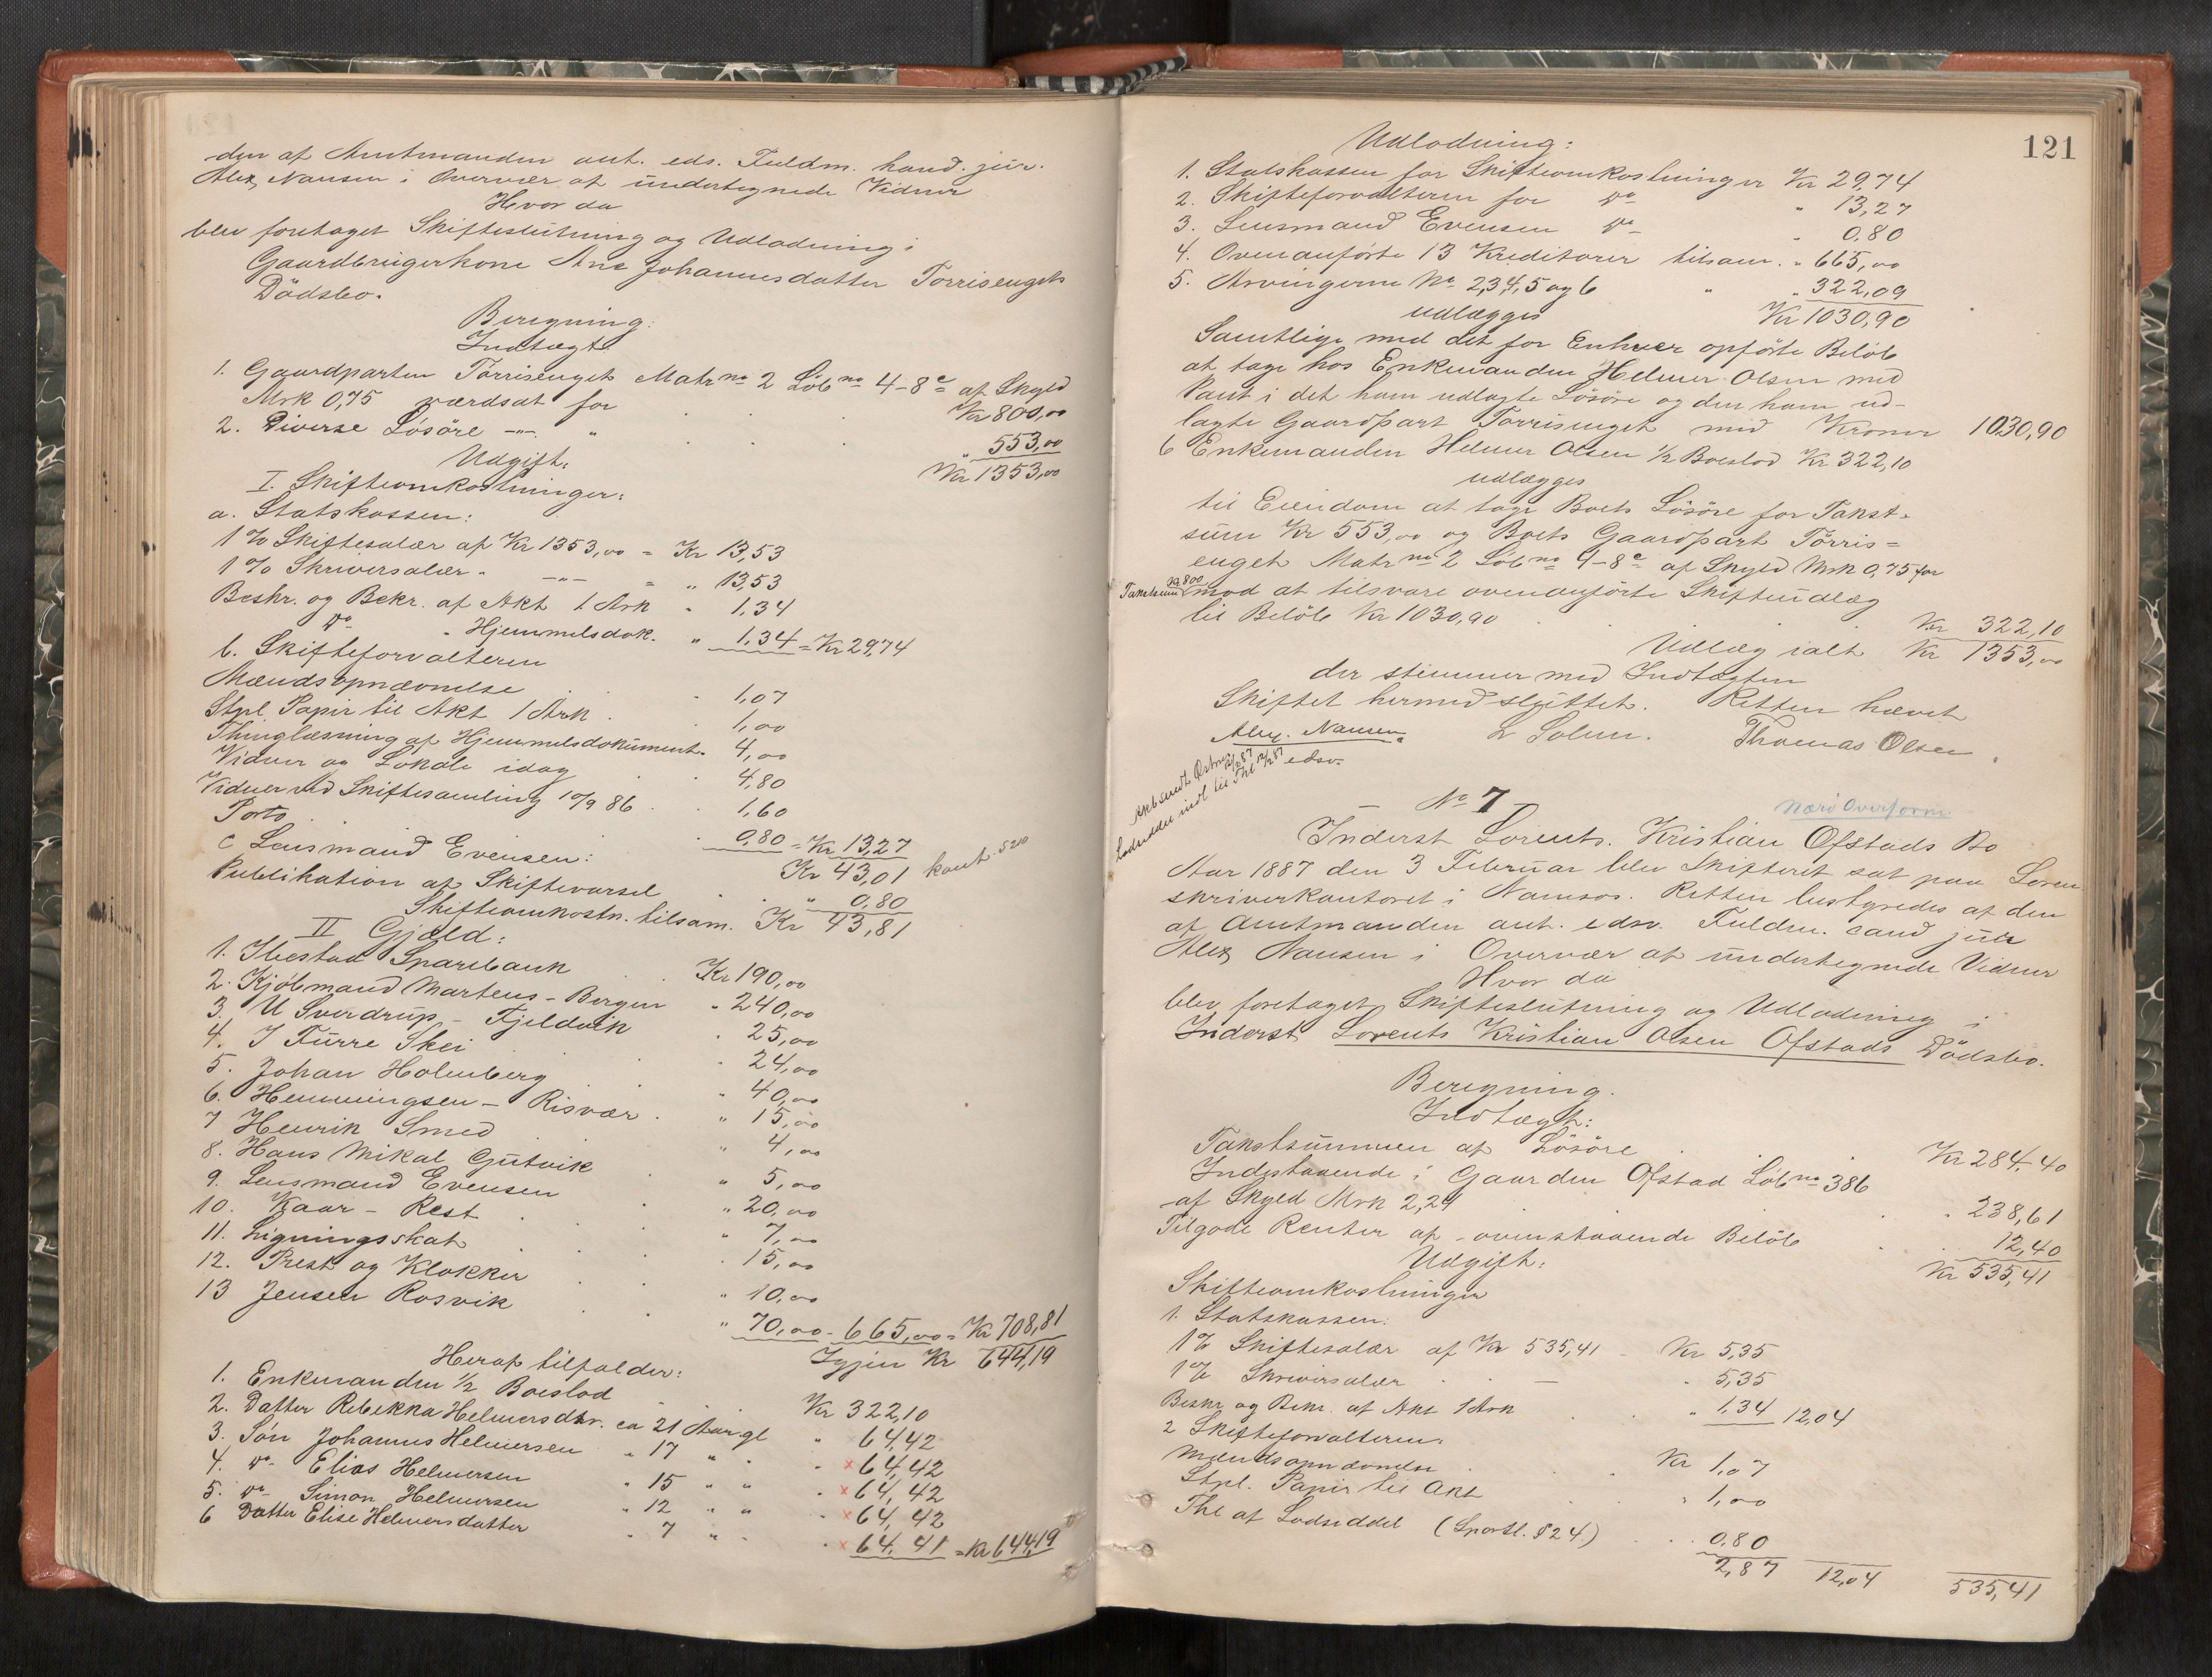 den af Amtmanden ant. eds. Fuldm. kand. jur.
Alex Nansen i Overvær af undertegnede Vidner
Hvor da
blev foretaget Skifteslutning og Udlodning i
Gaardbrugerkone Ane Johannesdatter Tørrisengets
Dødsbo.
Beregning:
Indtægt.
1. Gaardparten Tørrisengets Matr no 2 Løb no 4-8c af Skyld
Mrk 0,75 værdsat for . . . Kr 800,00
2. Diverse Løsøre -"- " . . . " 553,00
Udgift: Kr 1353,00
I. Skifteomkostninger:
a. Statskassen:
1% Skiftesalær af Kr 1353,00 = Kr 13,53
1% Skriversalær . -"- = " 13,53
Beskr. og Bekr. af Akt 1 Ark " 1,34
Do " Hjemmelsdok. " 1,34 = Kr 29,74
b. Skifteforvalteren
Mændsopnævnelse . . . 1,07
Stpl. Papir til Akt 1 Ark . . 1,00
Thinglæsning af Hjemmelsdokument. 4,00
Vidner og Lokale idag . . 4,80
Vidner ved Skiftesamling 10/9 86 . . 1,60
Porto . . 0,80 = Kr 13,27
Kr 43,01 kont. 520
c Lensmand Evensen:
Publikation af Skiftevarsel . . " 0,80
Skifteomkostn. tilsam. Kr 43,81
II Gjæld:
1. Ibestad Sparebank . . Kr 190,00
2. Kjøbmand Martens - Bergen " 240,00
3. U Sverdrup - Fjeldvik . 25,00
4. J Furre Skei . . 24,00
5. Johan Holmberg . . 40,00
6. Hemmingsen - Risvær . " 15,00
7 Henrik Smed " 4,00
8. Hans Mikal Gutvik . " 5,00
9. Lensmand Evensen . " 20,00
10. Kaar - Rest . . " 7,00
11. Ligningsskat . . . 15,00
12. Prest og Klokker . . " 10,00
13 Jensen Rosvik . . " 70,00 - 665,00 = Kr 708,81
Igjen Kr 644,19
Heraf tilfalder:
1. Enkemanden 1/2 Boeslod Kr 322,10
2. Datter Rebekka Helmersdtr. ca 21 Aar gl " 64,42
3. Søn Johannes Helmersen " 17 " " × 64,42
4. Do Elias Helmersen " 15 " " × 64,42
5. Do Simon Helmersen " 12 " " × 64,42
6 Datter Elise Helmersdatter " 7 " . × 64,41 = Kr 644,19
121
Udlodning:
1. Statskassen for Skifteomkostninger Kr 29,74
2. Skifteforvalteren for Do " 13,27
3. Lensmand Evensen Do " 0,80
4. Ovenanførte 13 Kreditorer tilsam. " 665,00
5. Arvingerne No 2,3,4,5 og 6 " " 322,09
udlægges Kr 1030,90
Samtlige med det for Enhver opførte Beløb
at tage hos Enkemanden Helmer Olsen med
Pant i det ham udlagte Løsøre og den ham ud-
lagte Gaardpart Tørrisenget med Kroner 1030,90
6 Enkemanden Helmer Olsen 1/2 Boeslod Kr 322,10
udlægges
til Eiendom at tage Boets Løsøre for Takst-
sum Kr 553,00 og Boets Gaardpart Tørris=
enget Matr no 2 Løb no 4-8c af Skyld Mrk 0,75 for
Takstsum Kr 800 mod at tilsvare ovenanførte Skifteudlæg
til Beløb Kr 1030,90 . Kr 322,10
Udlæg ialt Kr 1353,00
der stemmer med Indtægten
Skiftet hermed sluttet. Retten hævet
Alex. Nansen. L Solum. Thomas Olsen
edsv.
No 7
Nærö Overform
Inderst Lorents Kristian Ofstads Bo
Aar 1887 den 3 Februar blev Skifteret sat paa Soren
skriverkontoret i Namsos. Retten bestyredes af den
af Amtmanden ant. edsv. Fuldm. cand jur
Alex Nansen i Overvær af undertegnede Vidner
Hvor da
blev foretaget Skifteslutning og Udlodning i
Inderst Lorents Kristian Olsen Ofstads Dødsbo.
Beregning.
Indtægt:
Takstsummen af Løsøre . . Kr 284,40
Indestaaende i Gaarden Ofstad Løb no 386
af Skyld Mrk 2,24 . 238,61
Tilgode Renter af ovenstaaende Beløb . . 12,40
Udgift: Kr 535,41
Skifteomkostninger
1. Statskassen:
1% Skiftesalær af Kr 535,41 Kr 5,35
1% Skriversalær . . — " 5,35
Beskr. og Bekr. af Akt 1 Ark " 1,34 12,04
2 Skifteforvalteren:
Mændsopnævnelse . . Kr 1,07
Stpl. Papir til Akt . . " 1,00
Thl af Lodseddel (Sportl. § 24) . . 0,80
2,87 12,04 535,41